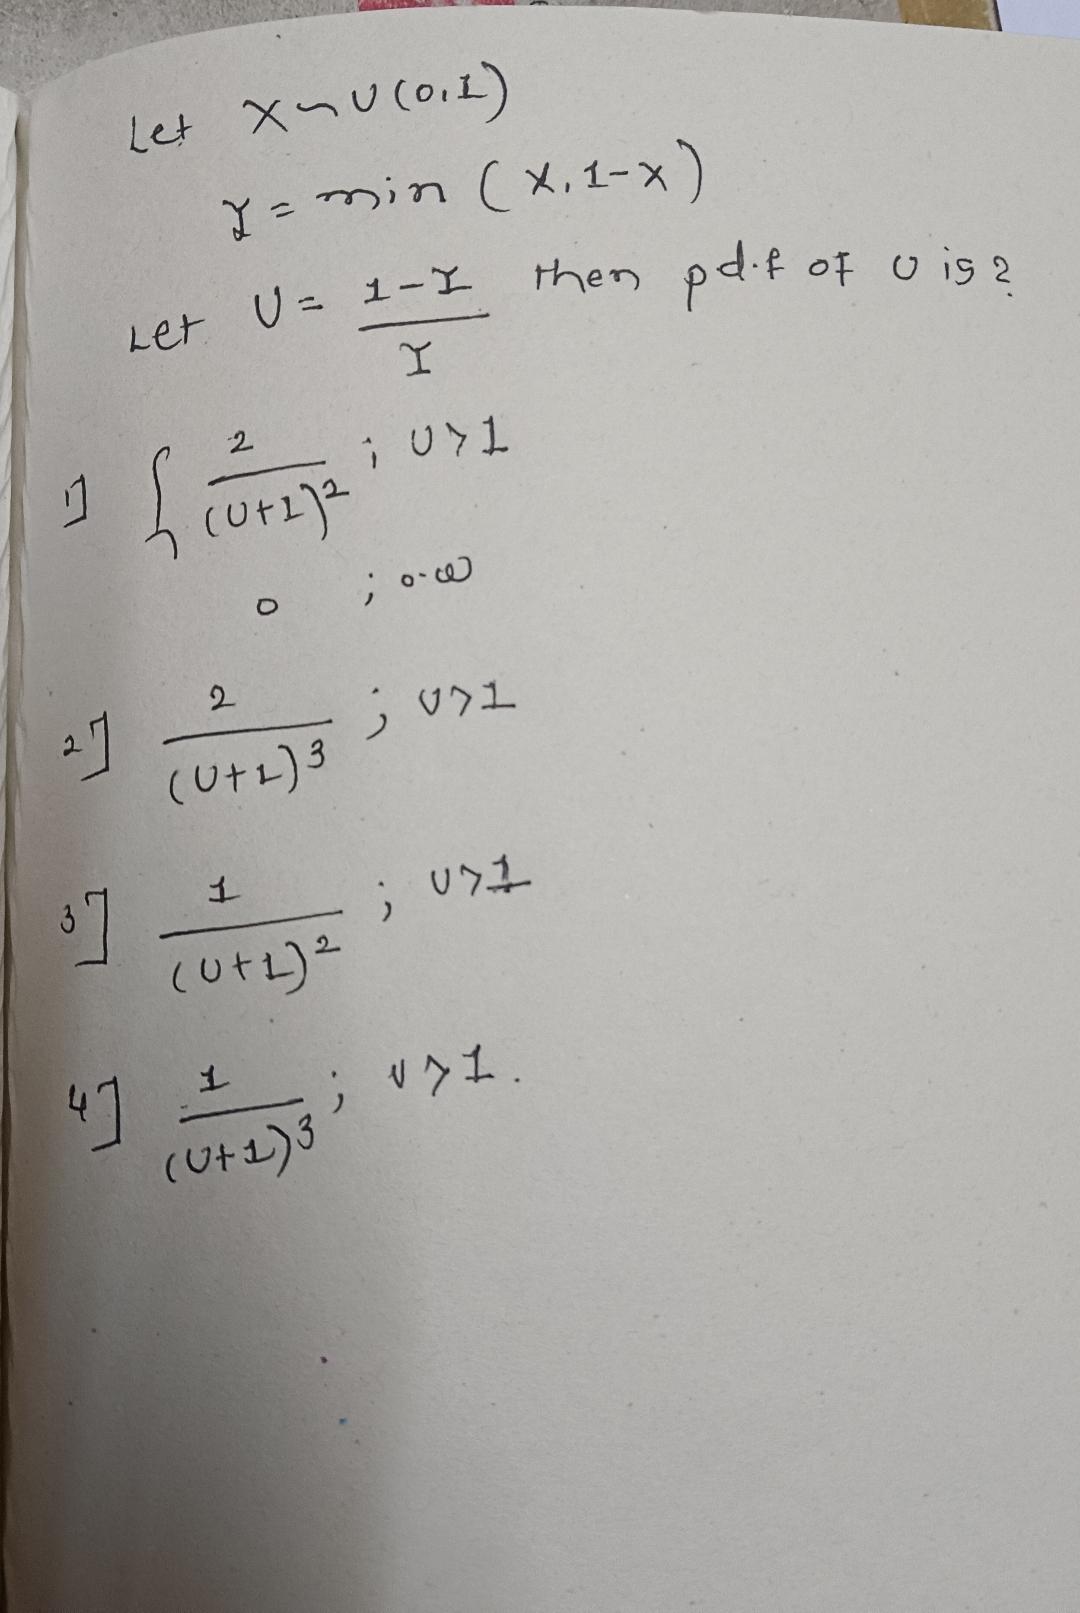 Let X ~ U(0,1)
Y = min (X, 1-X)
Let U = (1-Y)/Y then pd.f of U is ?
1] { 2/(U+1)² ; U>1
0 ; o.w
2] 2/(U+1)³ ; U>1
3] 1/(U+1)² ; U>1
4] 1/(U+1)³ ; U>1.